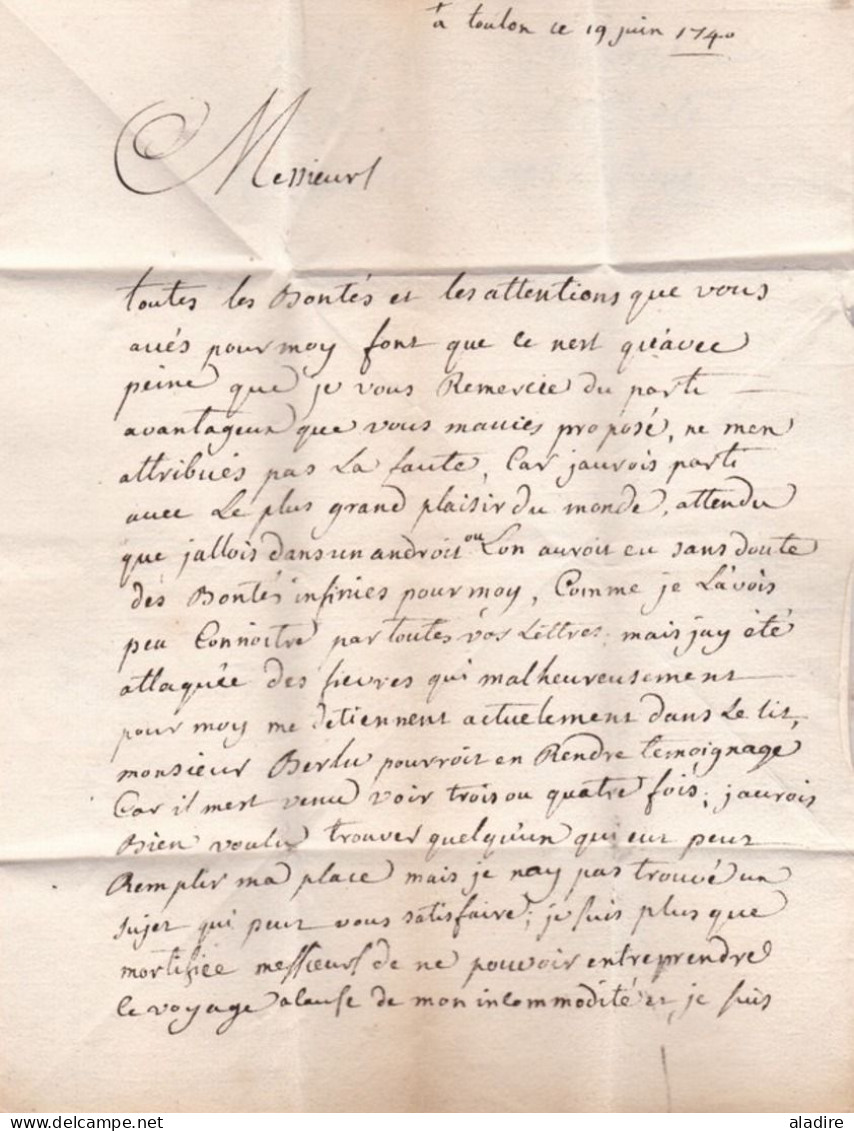 a toulon ce 19 juin 1740
Messieurs
toutes les Bontés et les attentions que vous
avés pour moy font que ce nest qu'avec
peine que je vous Remercie du parti
avantageux que vous maviés proposé, ne men
attribués pas La faute, Car jaurois parti
avec Le plus grand plaisir du monde, attendu
que jallois dans un androit ou Lon auroit eu sans doute
des Bontés infinies pour moy, Comme je Lavois
peu Connoitre par toutes vos Lettres, mais jay été
attaquée des fievres qui malheureusement
pour moy me detiennent actuelement dans Le lit,
monsieur Berlu pourroit en Rendre temoignage
Car il mest venu voir trois ou quatre fois; jaurois
Bien voulu trouver quelqu'un qui eut peut
Remplir ma place mais je nay pas trouvé un
sujet qui peut vous satisfaire; je suis plus que
mortifiée messieurs de ne pouvoir entreprendre
le voyage a cause de mon incommodité et je suis
aladire